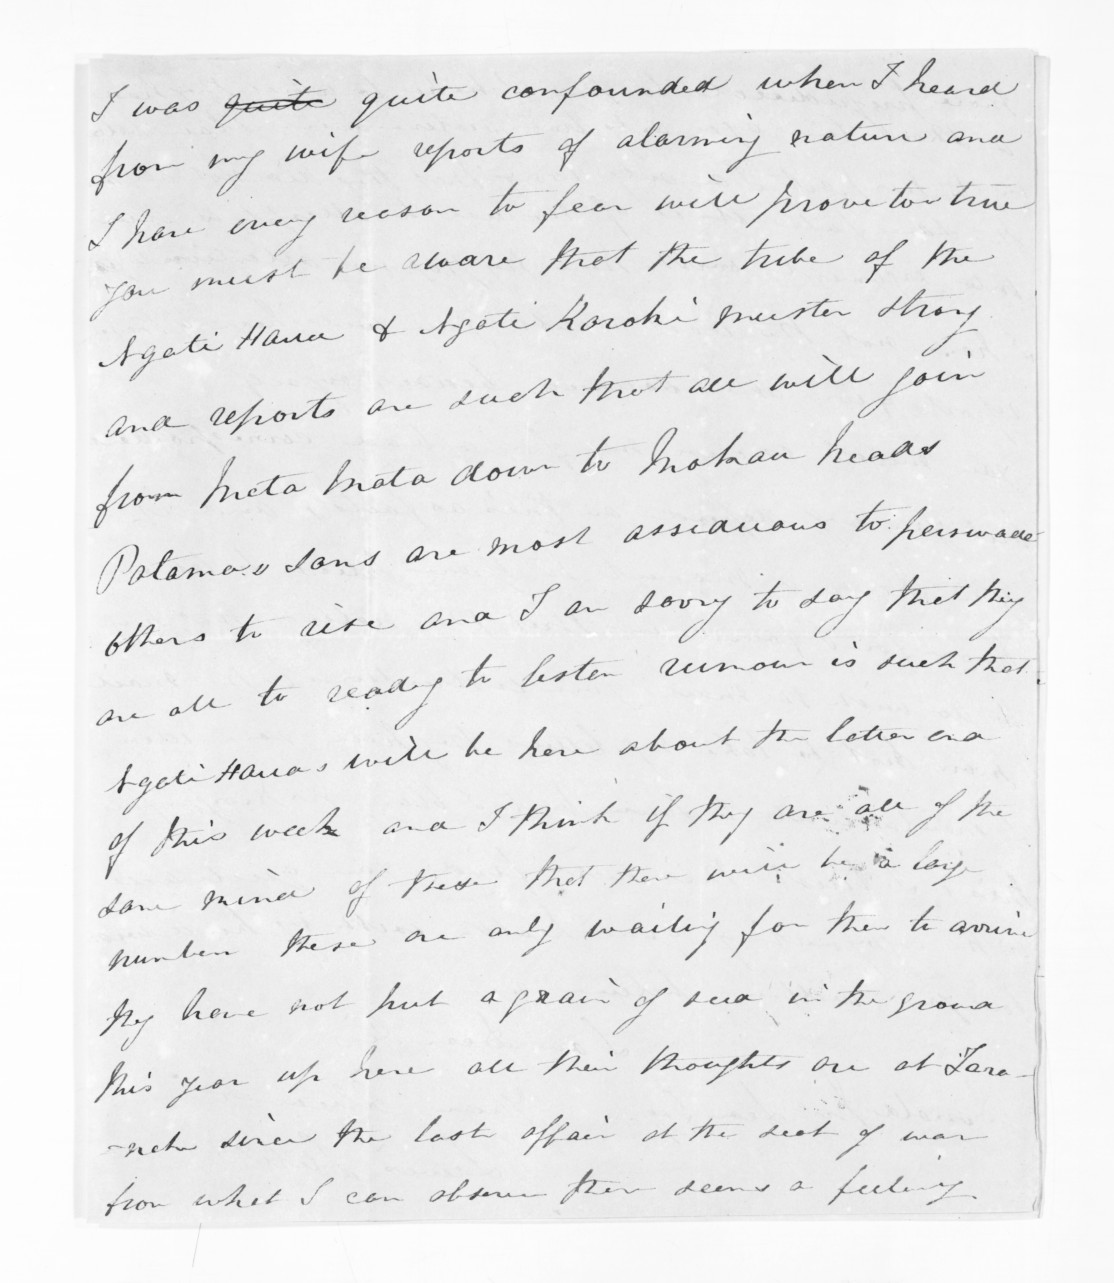 I was ~~quite~~ quite confounded when I heard
from my wife reports of alarming nature and
I have every reason to fear will prove to true
you must be aware that the tribe of the
Ngati Haua & Ngati Koroki muster strong
and reports are such that all will join
from Mata Mata down to Mokau heads
Patama's sons are most assiduous to persuade
others to rise and I am sorry to say that they
are all to ready to listen rumour is such that
Ngati Hauas will be here about the latter end
of this week and I think if they are all of the
same mind of these that there will be a large
number these are only waiting for them to arrive
they have not put a grain of seed in the ground
this year up here all their thoughts are at Tara-
-naki since the last affair at the seat of war
from what I can observe there seems a feeling